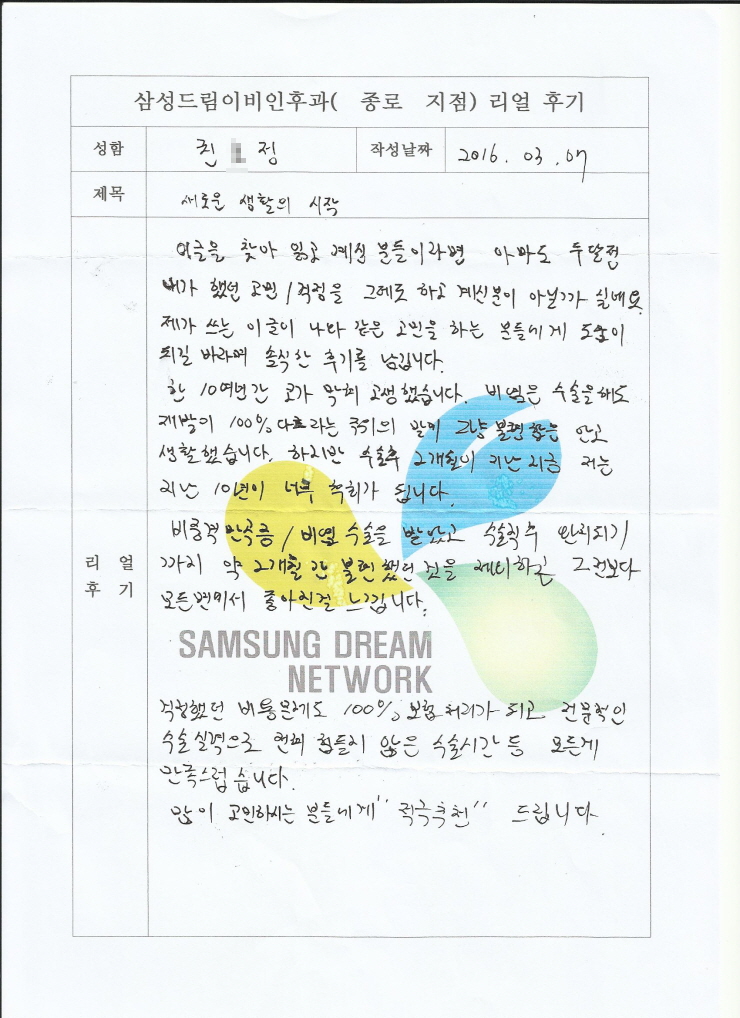 삼성드림이비인후과( 종로 지점) 리얼 후기
성함 최 정 작성날짜 2016. 03. 07
제목 새로운 생활의 시작
이글을 찾아 읽고 계신 분들이라면 아마도 두달전
내가 했던 고민/걱정을 그대로 하고 계신분이 아닐까 싶네요.
제가 쓰는 이글이 나와 같은 고민을 하는 분들에게 도움이
되길 바라며 솔직한 후기를 남깁니다.
한 10여년간 코가 막혀 고생했습니다. 비염은 수술을해도
재발이 100%다라는 주위의 말에 그냥 불편함을 안고
생활했습니다. 하지만 수술후 2개월이 지난 지금 저는
지난 10년이 너무 후회가 됩니다.
비중격만곡증/비염 수술을 받았고 수술직후 안정되기
까지 약 2개월간 불편했던 것을 제외하곤 그전보다
모든면에서 좋아진걸 느낍니다.
리얼
후기
SAMSUNG DREAM
NETWORK
걱정했던 비용문제도 100% 보험처리가 되고 전문적인
수술실력으로 전혀 힘들지 않은 수술시간 등 모든게
만족스럽습니다.
많이 고민하시는 분들에게 "적극추천" 드립니다.